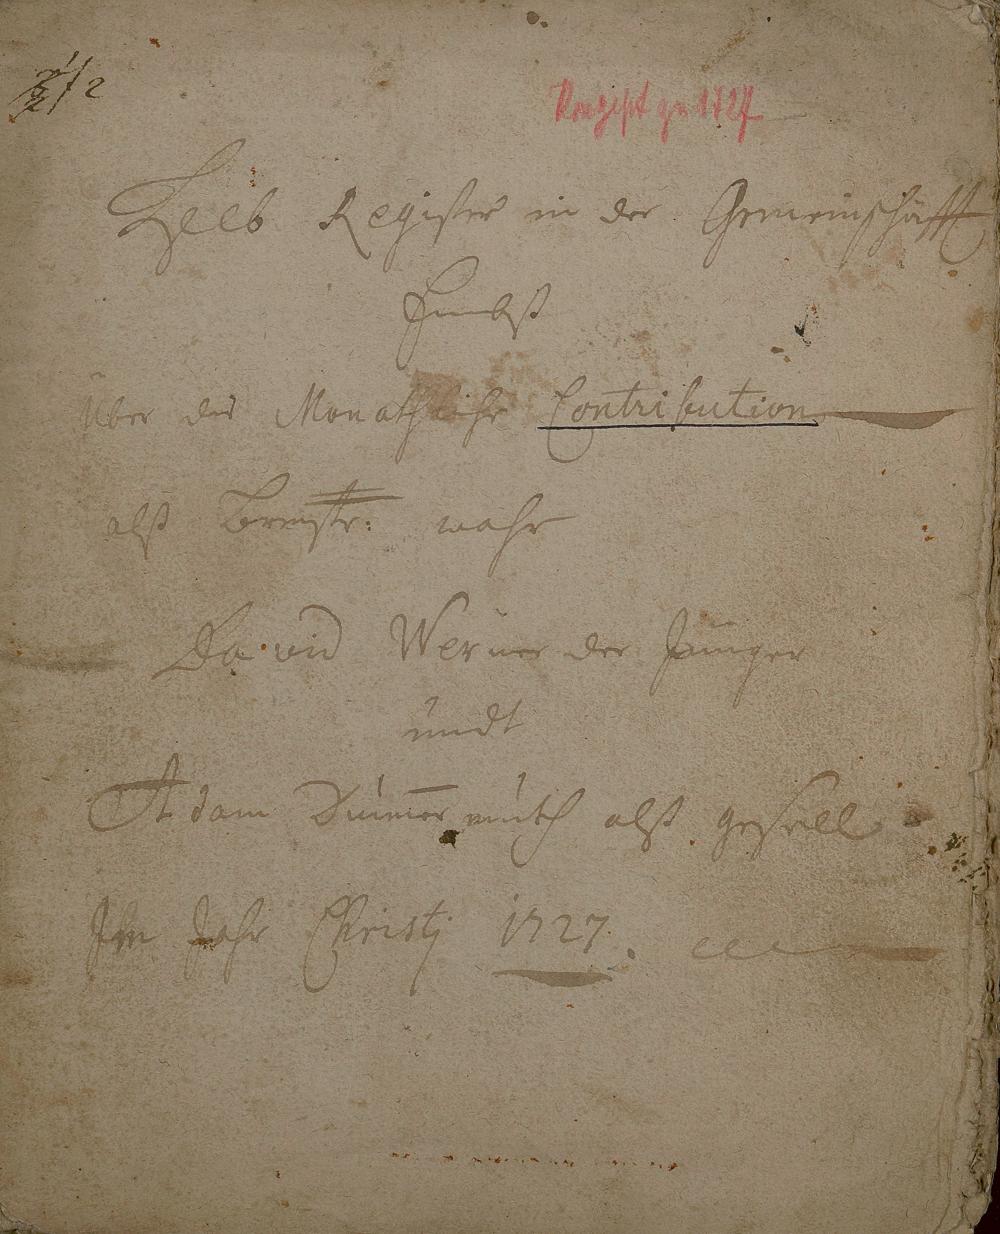 2
Konzept zu 1727
Heeb Register in der Gemeinschafft
Himbst
über die Monathliche Contribution
alß Brmstr: wahr
David Werner der Jünger
undt
Adam Dümmermuth alß gesell
Im Jahr Christj 1727.